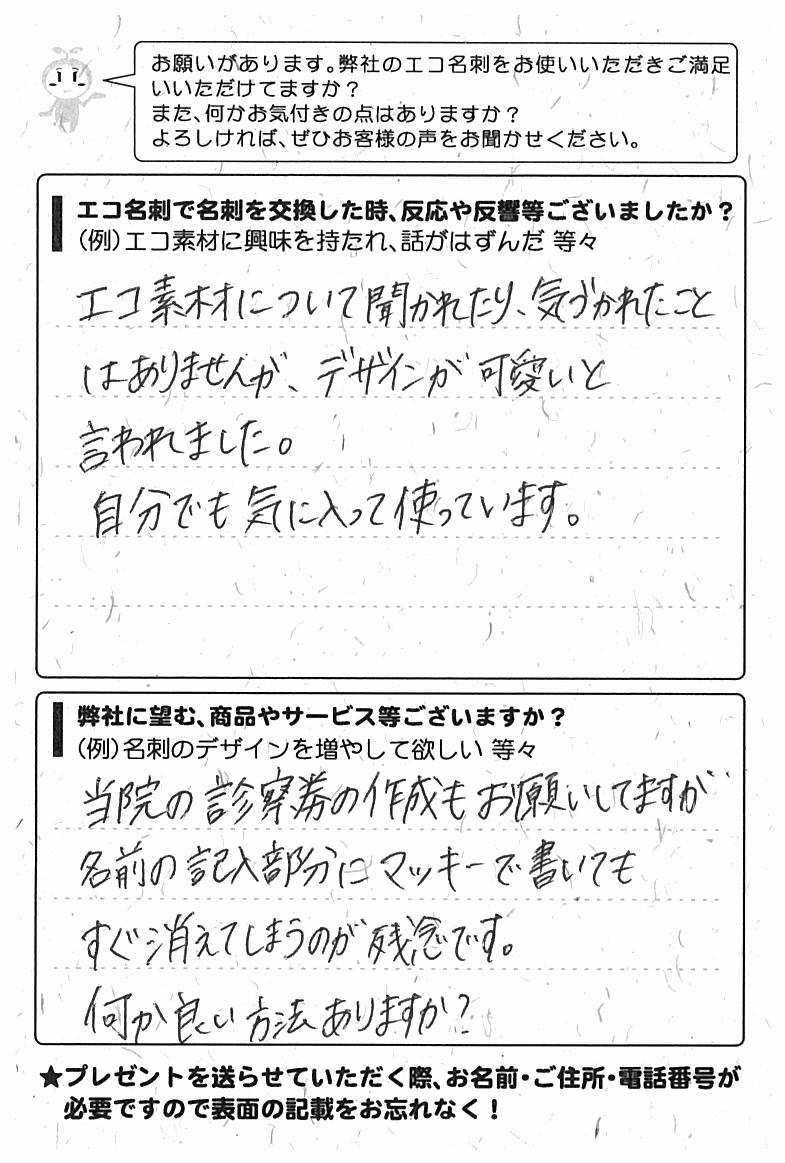 お願いがあります。弊社のエコ名刺をお使いいただきご満足
いいただけてますか？
また、何かお気付きの点はありますか？
よろしければ、ぜひお客様の声をお聞かせください。
エコ名刺で名刺を交換した時、反応や反響等ございましたか？
（例）エコ素材に興味を持たれ、話がはずんだ 等々
エコ素材について聞かれたり、気づかれたこと
はありませんが、デザインが可愛いと
言われました。
自分でも気に入って使っています。
弊社に望む、商品やサービス等ございますか？
（例）名刺のデザインを増やして欲しい 等々
当院の診察券の作成もお願いしてますが
名前の記入部分にマッキーで書いても
すぐ消えてしまうのが残念です。
何か良い方法ありますか？
★プレゼントを送らせていただく際、お名前・ご住所・電話番号が
必要ですので表面の記載をお忘れなく！